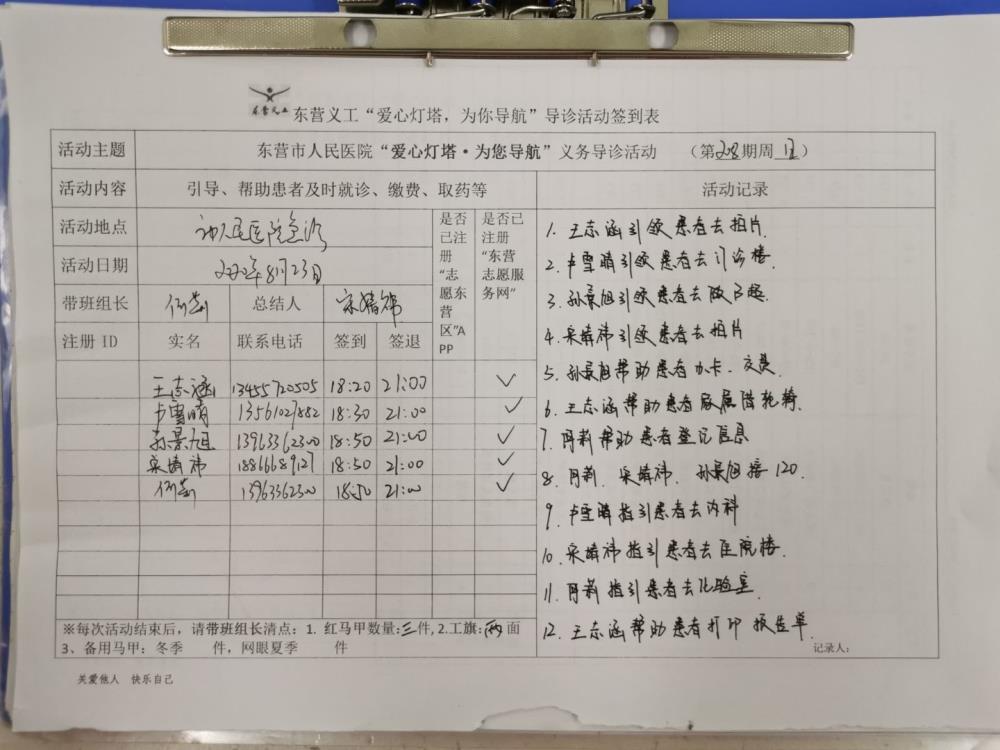 东营义工
东营义工“爱心灯塔，为你导航”导诊活动签到表
活动主题 东营市人民医院“爱心灯塔·为您导航”义务导诊活动 （第 期周日）
活动内容 引导、帮助患者及时就诊、缴费、取药等 活动记录
活动地点 市人民医院急诊
活动日期 2022年8月23日
是否已注册“志愿东营区”APP
是否已注册“东营志愿服务网”
带班组长 总结人
注册 ID 实名 联系电话 签到 签退
王志涵 13455720505 18:20 21:00 ✓
卢雪晴 13561027882 18:30 21:00 ✓
孙景旭 13963362300 18:50 21:00 ✓
宋婧祎 18866689127 18:50 21:00 ✓
13963362300 18:50 21:00 ✓
1. 王志涵引领患者去拍片.
2. 卢雪晴引领患者去门诊楼.
3. 孙景旭引领患者去做B超.
4. 宋婧祎引领患者去拍片
5. 孙景旭帮助患者办卡、交费.
6. 王志涵帮助患者家属借轮椅.
7. 帮助患者登记信息
8. 宋婧祎、孙景旭接120.
9. 卢雪晴指引患者去内科
10. 宋婧祎指引患者去住院楼.
11. 指引患者去化验室.
12. 王志涵帮助患者打印报告单.
※每次活动结束后，请带班组长清点：1. 红马甲数量:三件, 2.工旗:两面
3、备用马甲：冬季 件，网眼夏季 件
记录人：
关爱他人 快乐自己